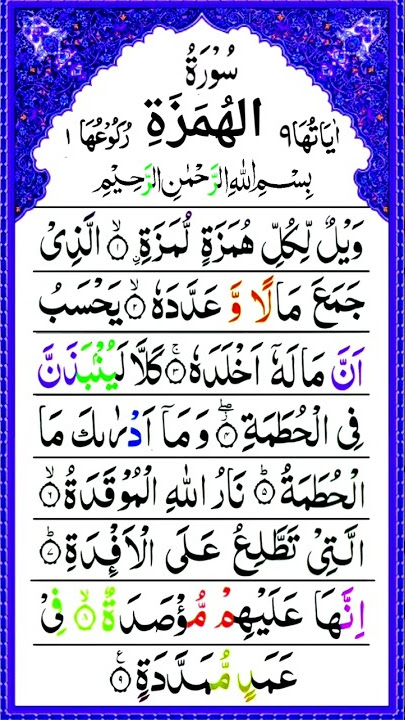 سُوْرَةُ
اٰيَاتُهَا ٩ الْهُمَزَةِ رُكُوْعُهَا ١
بِسْمِ اللهِ الرَّحْمٰنِ الرَّحِيْمِ
وَيْلٌ لِّكُلِّ هُمَزَةٍ لُّمَزَةِ ۙ‏﴿۱﴾ اۨلَّذِىْ
جَمَعَ مَالًا وَّ عَدَّدَهٗ ۙ‏﴿۲﴾ يَحْسَبُ
اَنَّ مَالَهٗۤ اَخْلَدَهٗ ۚ‏﴿۳﴾ كَلَّا لَيُنْۢبَذَنَّ
فِى الْحُطَمَةِ ۖ‏﴿۴﴾ وَمَاۤ اَدْرٰىكَ مَا
الْحُطَمَةُ ؕ‏﴿۵﴾ نَارُ اللهِ الْمُوْقَدَةُ ۙ‏﴿۶﴾
الَّتِىْ تَطَّلِعُ عَلَى الْاَفْـِٕدَةِ ؕ‏﴿۷﴾
اِنَّهَا عَلَيْهِمْ مُّؤْصَدَةٌ ۙ‏﴿۸﴾ فِىْ
عَمَدٍ مُّمَدَّدَةٍ ‏﴿۹﴾